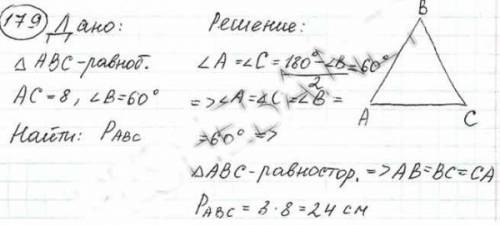 179 Дано:
△ ABC - равноб.
AC = 8, ∠B = 60°
Найти: P_ABC
Решение:
∠A = ∠C = (180° - ∠B)/2 = 60°
=> ∠A = ∠C = ∠B =
= 60° =>
△ABC - равностор. => AB = BC = CA
P_ABC = 3 · 8 = 24 см
B
A
C